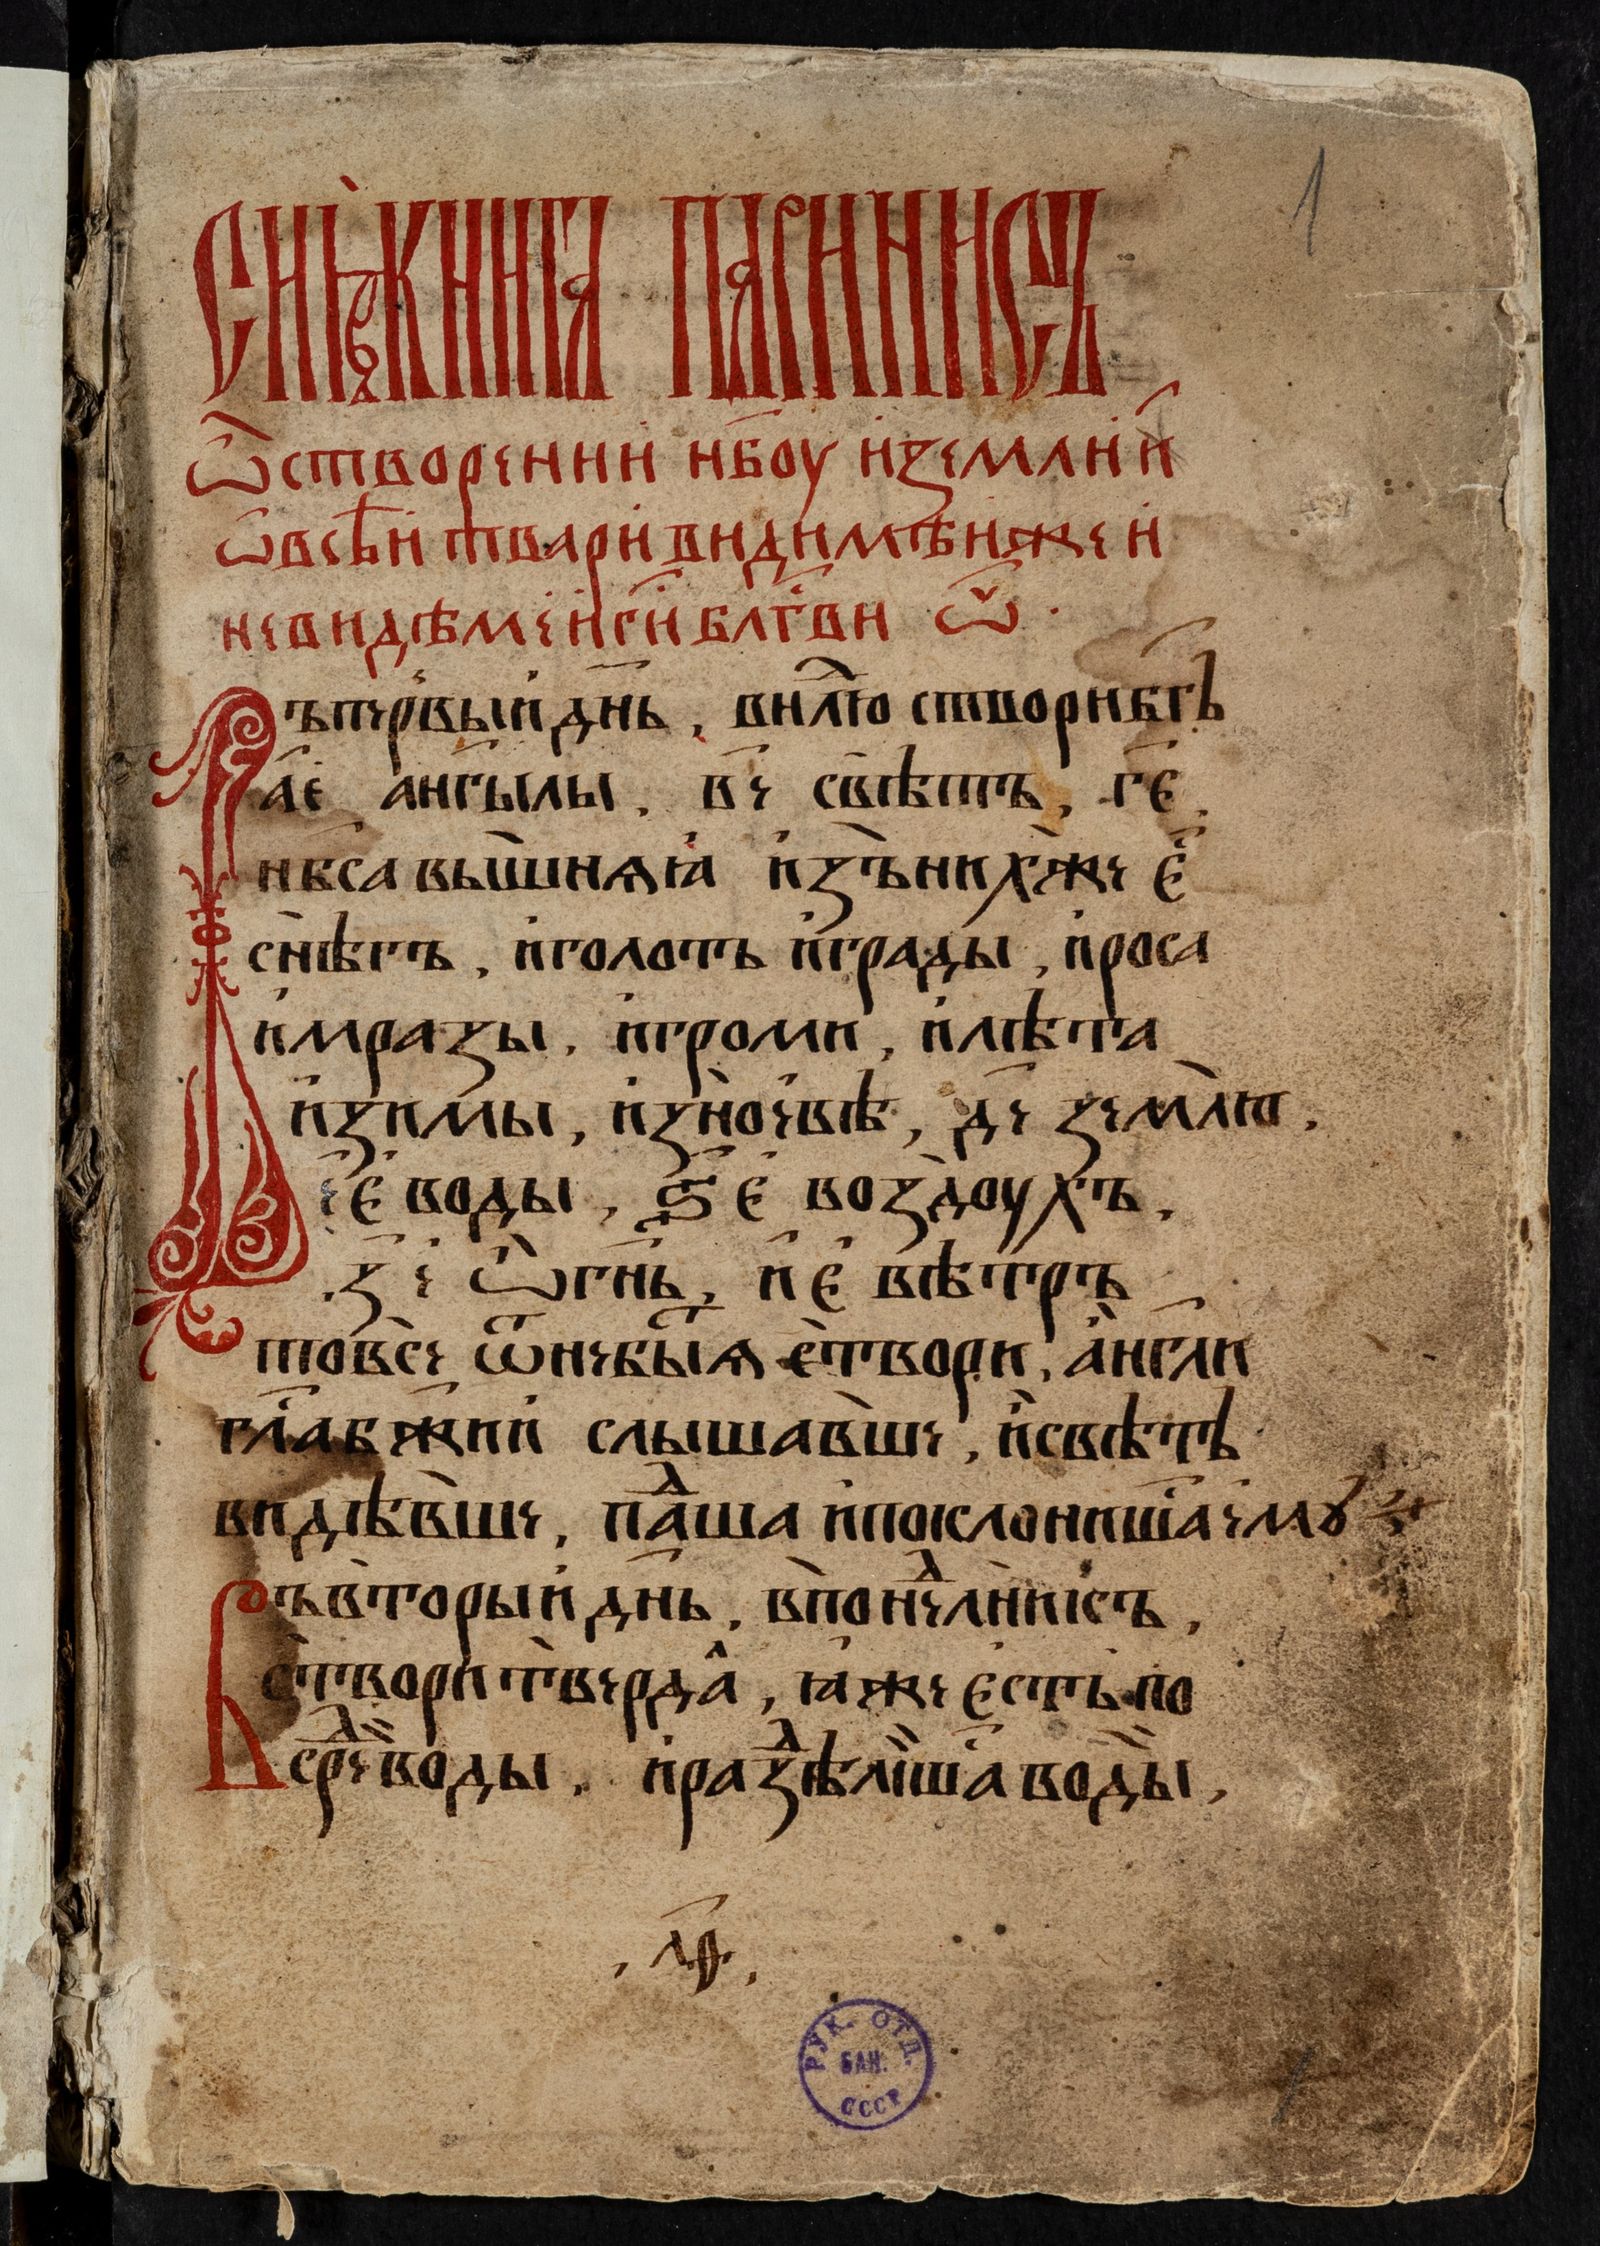 1
СИѦ КНИГА
ѿ створении нб҃оу и земли и҆
ѡ всѣи твари видимѣи же и
невидѣмеи гⷭ҇и блг҃ви ѿ ·
Въ первыи дн҃ь , внⷣлю створи бг҃ъ
а҃е анг҃ылы , в҃е свѣтъ , г҃е
нб҃са вышнѧꙗ изъ нихже є҆
снѣгъ , и голоть и грады , и роса
и мразы , и громи , и лѣта
и зимы , и зноеве , д҃е землю ,
е҃е воды , ѕ҃е воздоухъ ,
з҃е ѡ҆гнь , и҃е вѣтръ
то все ѿ небыⷮꙗ створи , а҆нгли
гл҃а бж҃ии слышавше , и свѣтъ
видѣвше , паⷣша и поклонишⷭа емꙋ
Въ вторыи дн҃ь , в понеⷣлникъ ,
створи твердь , ꙗже есть по
среⷣ воды , и разⷣѣлиша воды ,
РУК. ОТД.
БАН.
СССР